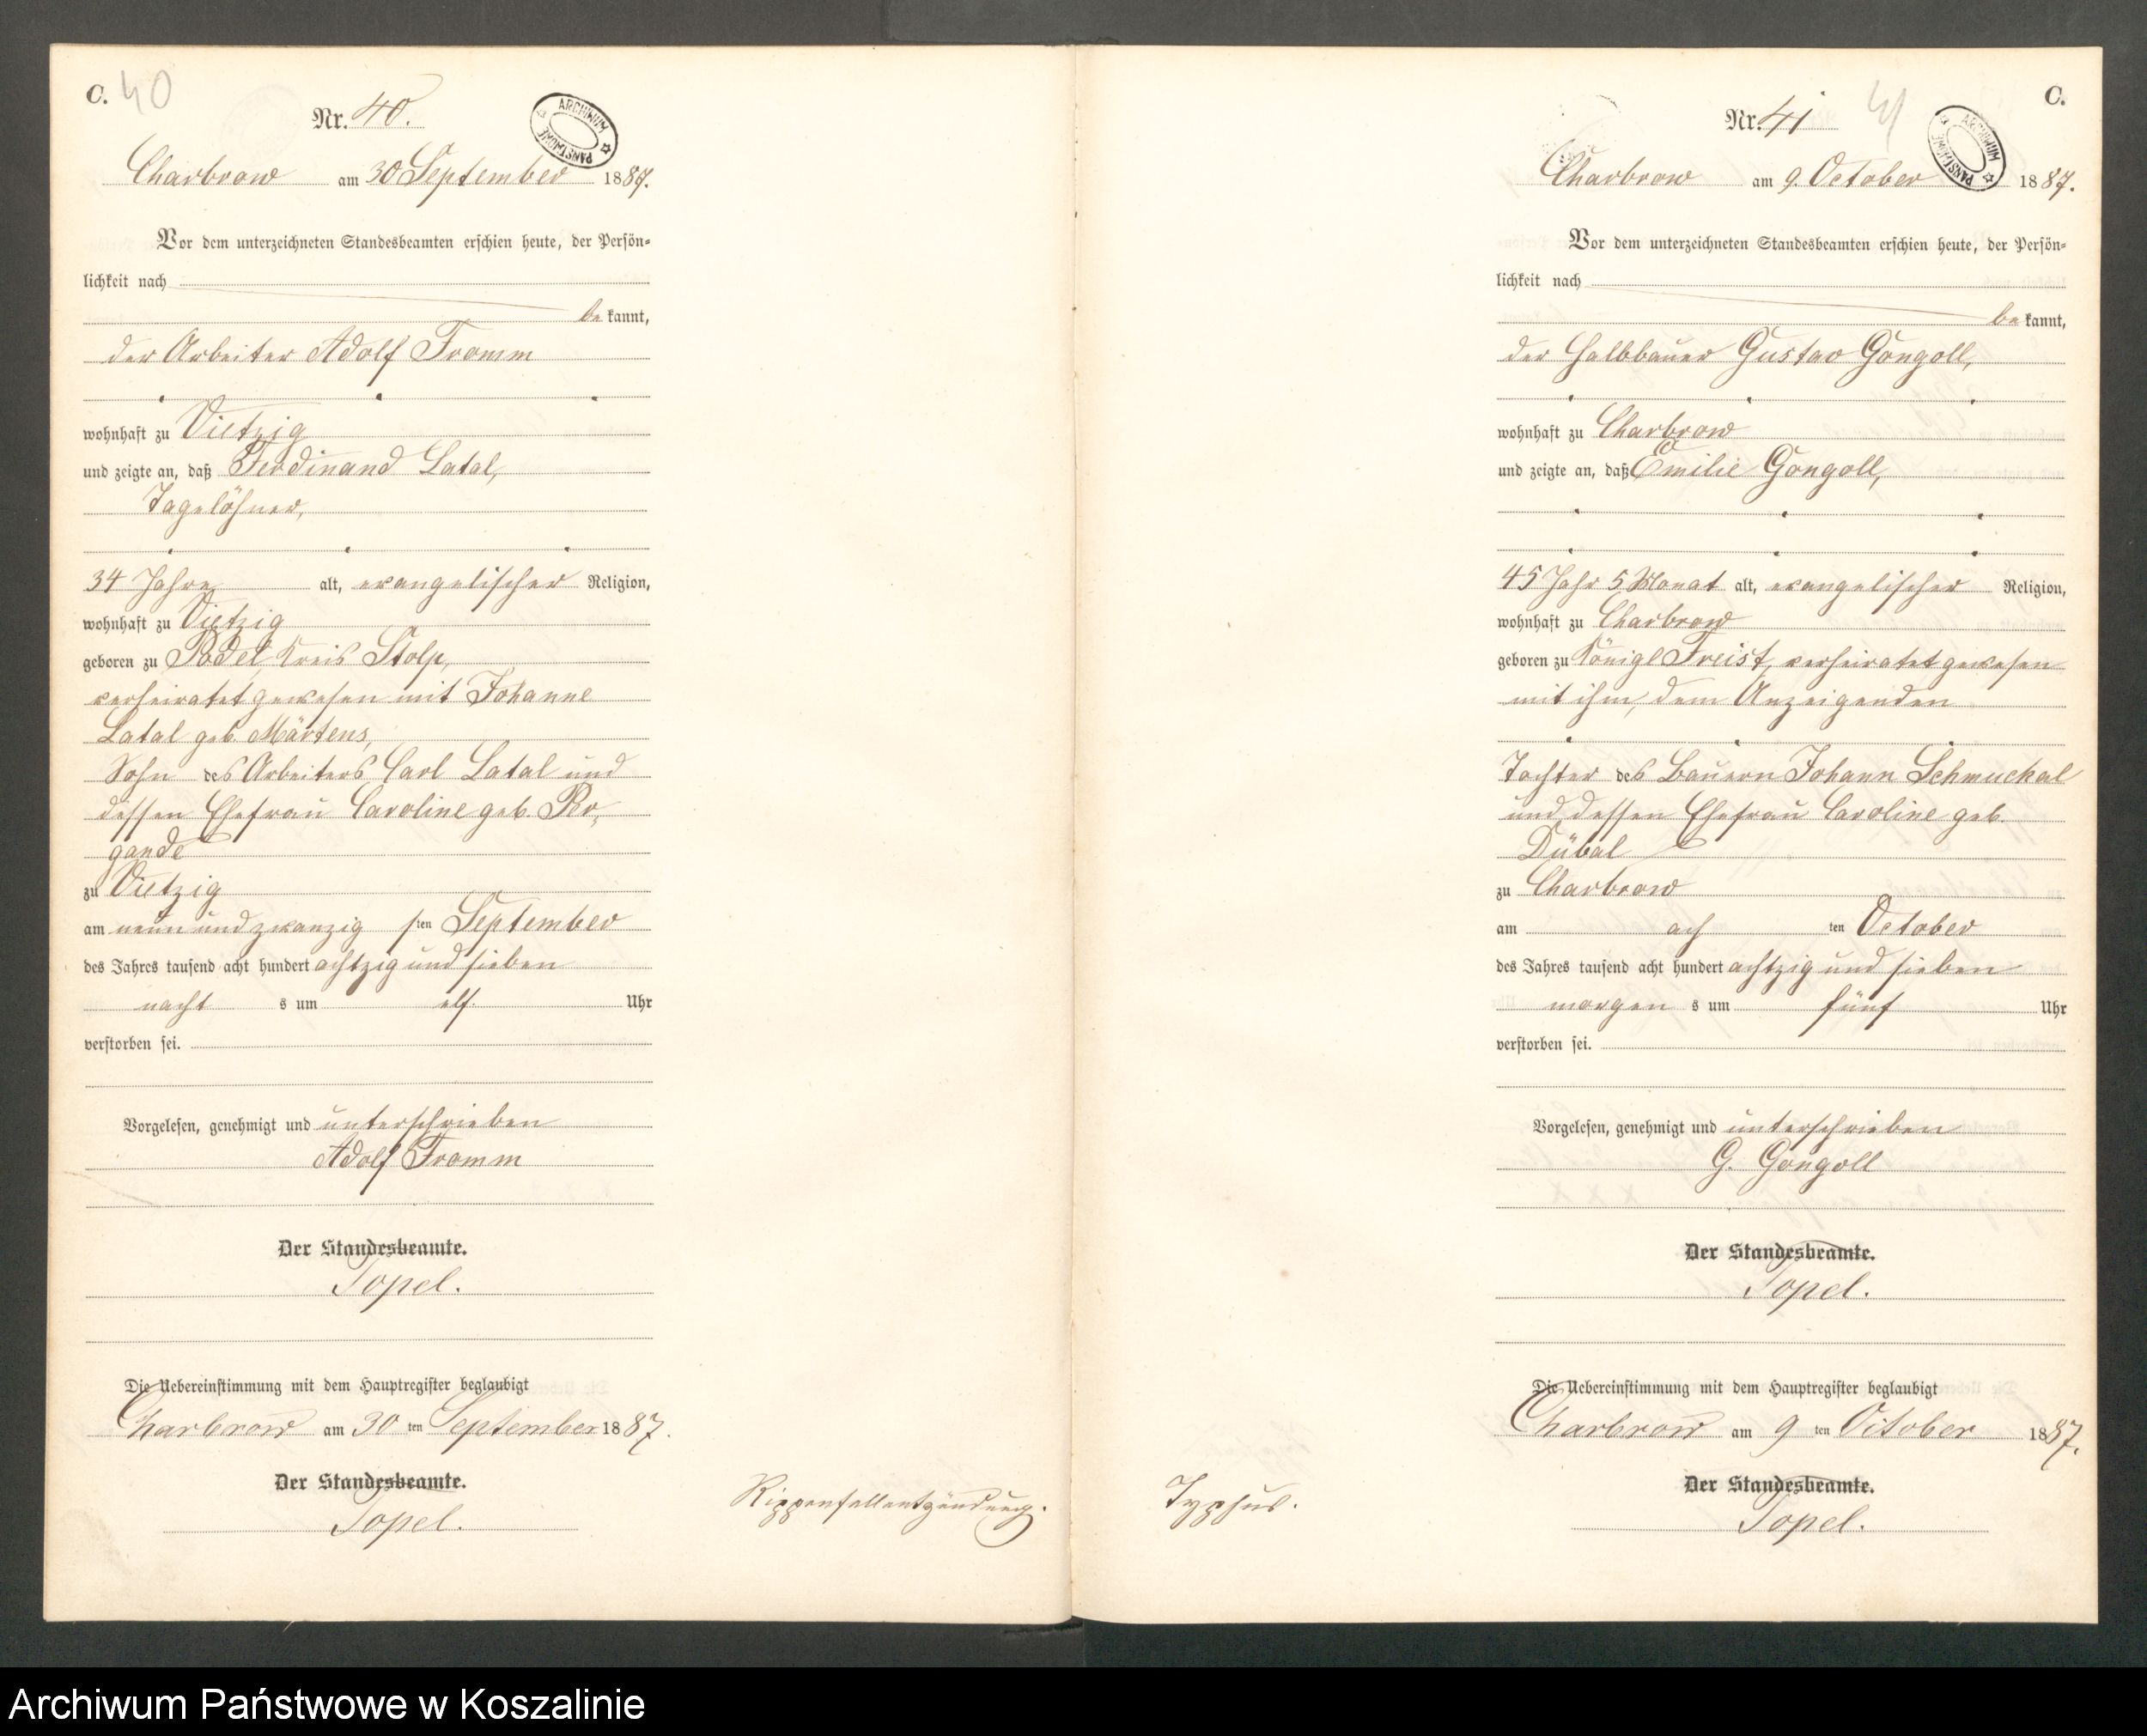 C. 40
Nr. 40.
ARCHIWUM PAŃSTWOWE
Charbrow am 30 September 1887.
Vor dem unterzeichneten Standesbeamten erschien heute, der Persön-
lichkeit nach
be kannt,
der Arbeiter Adolf Fromm
wohnhaft zu Vietzig
und zeigte an, daß Ferdinand Latal,
Tagelöhner,
34 Jahre alt, evangelischer Religion,
wohnhaft zu Vietzig
geboren zu Podel, Kreis Stolp,
verheiratet gewesen mit Johanne
Latal geb. Märtens,
Sohn des Arbeiters Carl Latal und
dessen Ehefrau Caroline geb. Ro-
gande
zu Vietzig
am neun und zwanzig sten September
des Jahres tausend acht hundert achtzig und sieben
nacht s um elf Uhr
verstorben sei.
Vorgelesen, genehmigt und unterschrieben
Adolf Fromm
Der Standesbeamte.
Topel.
Die Uebereinstimmung mit dem Hauptregister beglaubigt
Charbrow am 30 ten September 1887.
Der Standesbeamte.
Topel.
Rippenfellentzündung.
C.
41
Nr. 41
ARCHIWUM PAŃSTWOWE
Charbrow am 9. October 1887.
Vor dem unterzeichneten Standesbeamten erschien heute, der Persön-
lichkeit nach
be kannt,
der Halbbauer Gustav Gongoll,
wohnhaft zu Charbrow
und zeigte an, daß Emilie Gongoll,
45 Jahr 5 Monat alt, evangelischer Religion,
wohnhaft zu Charbrow
geboren zu Königl Freist, verheiratet gewesen
mit ihm, dem Anzeigenden
Tochter des Bauern Johann Schmuckal
und dessen Ehefrau Caroline geb.
Dübal
zu Charbrow
am ach ten October
des Jahres tausend acht hundert achtzig und sieben
morgen s um fünf Uhr
verstorben sei.
Vorgelesen, genehmigt und unterschrieben
G. Gongoll
Der Standesbeamte.
Topel.
Die Uebereinstimmung mit dem Hauptregister beglaubigt
Charbrow am 9 ten October 1887.
Der Standesbeamte.
Topel.
Typhus.
Archiwum Państwowe w Koszalinie